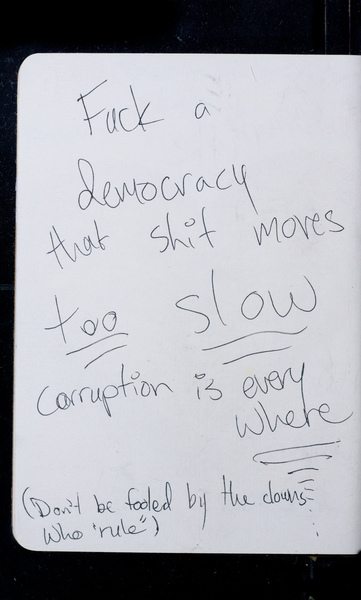 Fuck a
democracy
that shit moves
too slow
corruption is every
where
(Don't be fooled by the clowns
who "rule")